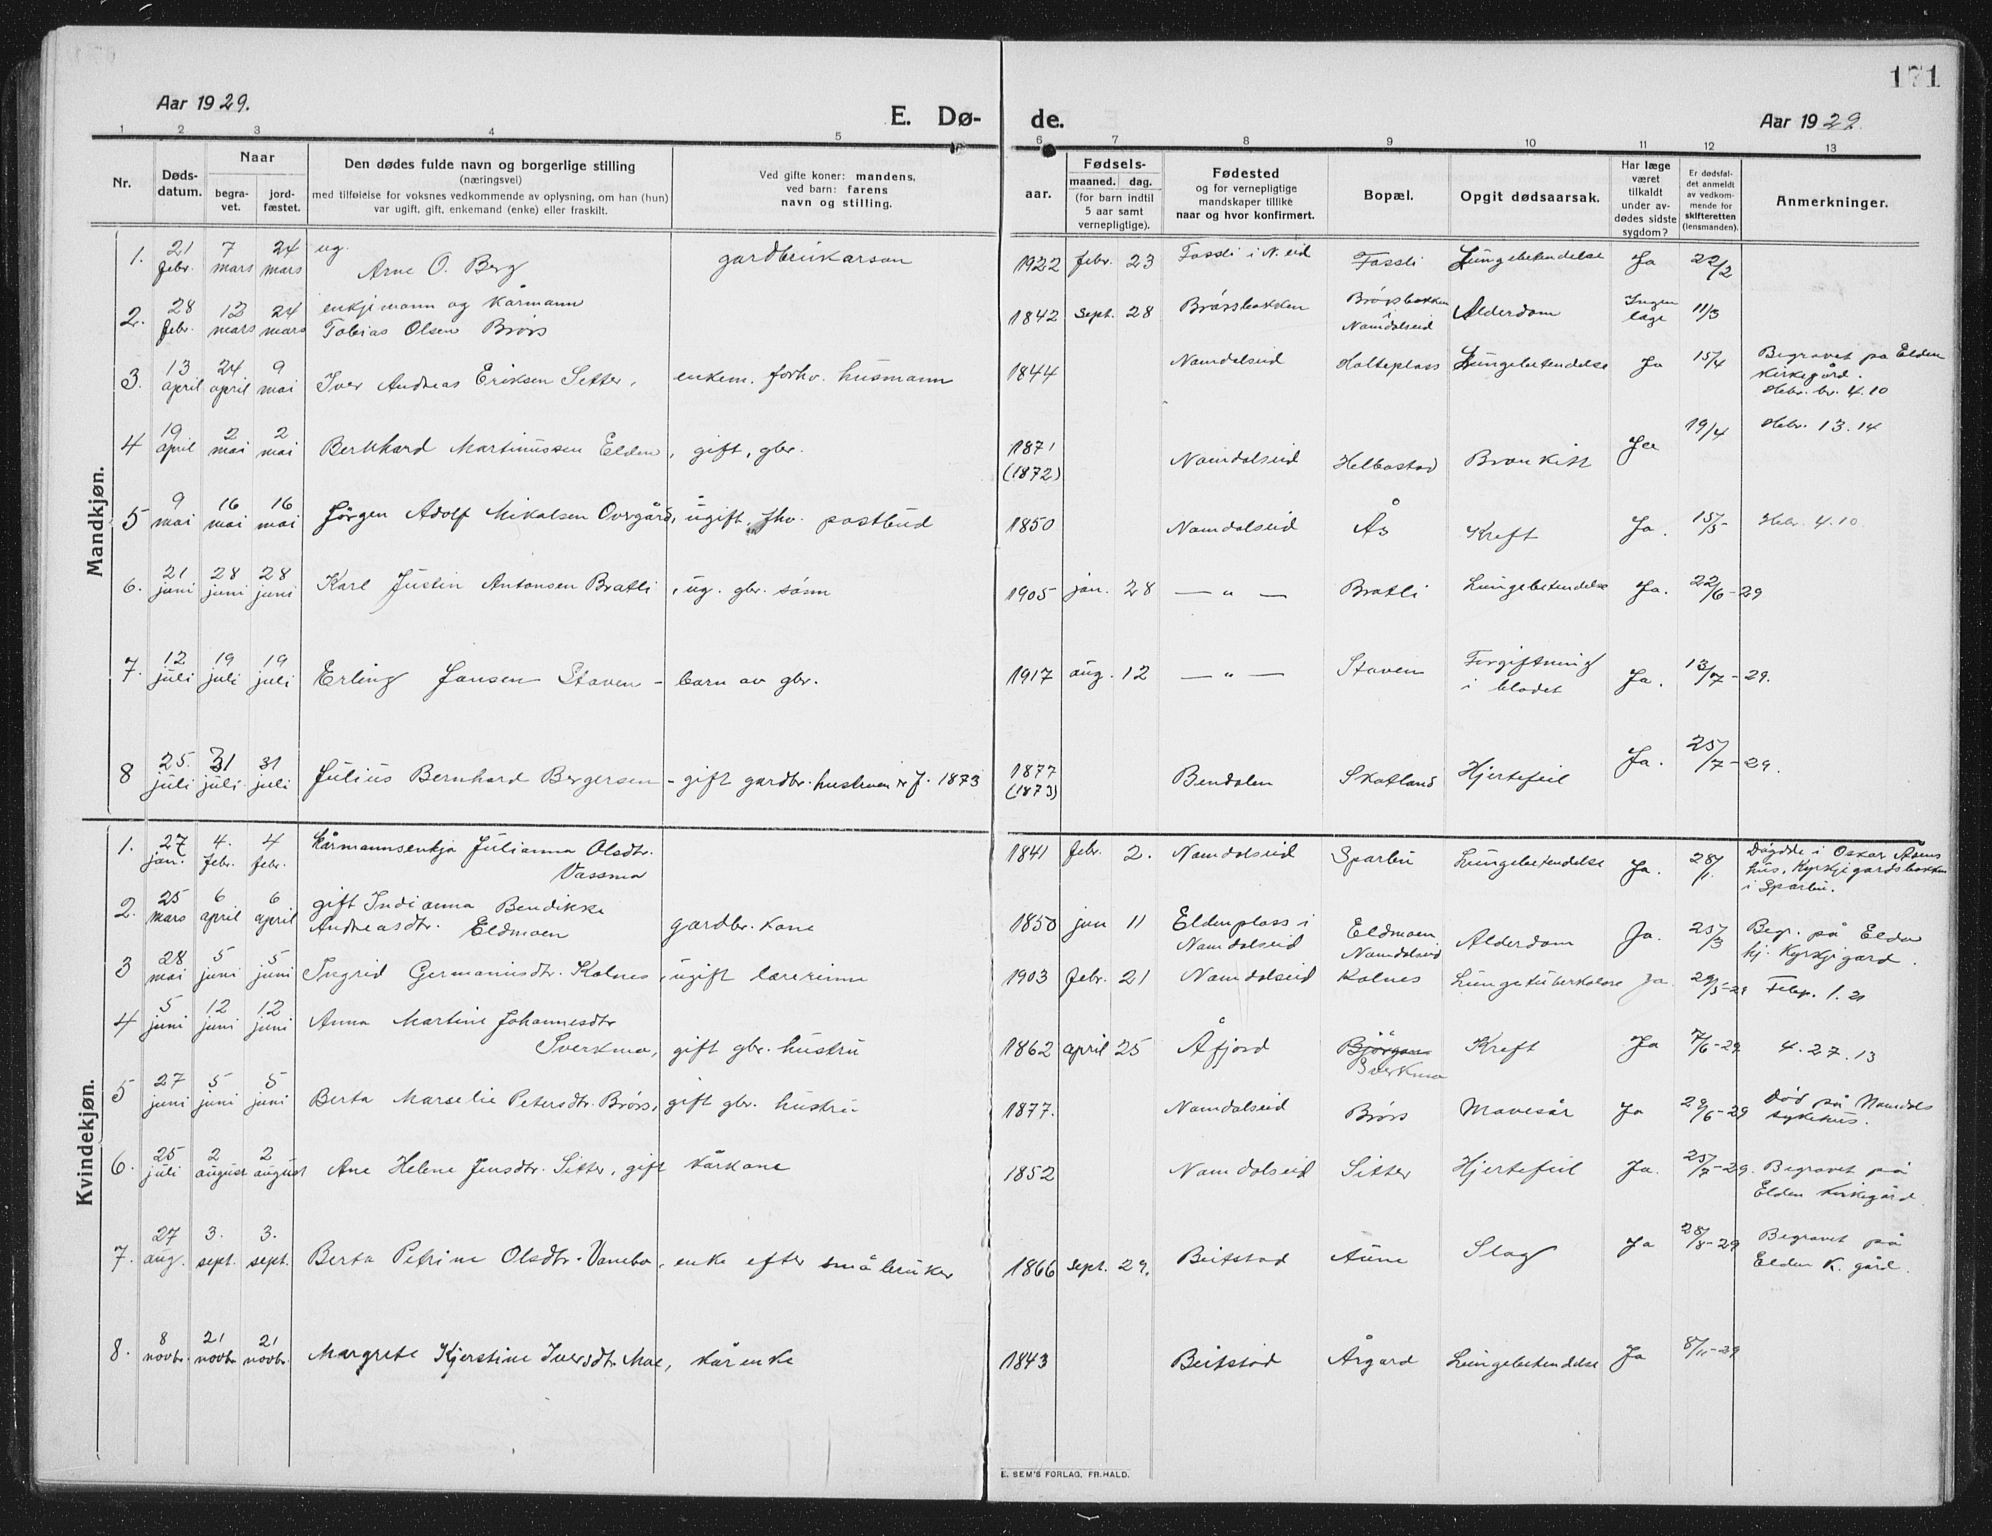 171
Aar 1929.
E. Dø-
de.
Aar 1929.
1 2 3 4 5 6 7 8 9 10 11 12 13
Nr.
Døds-
datum.
Naar
begra-
vet.
jord-
fæstet.
Den dødes fulde navn og borgerlige stilling
(næringsvei)
med tilføielse for voksnes vedkommende av oplysning, om han (hun)
var ugift, gift, enkemand (enke) eller fraskilt.
Ved gifte koner: mandens,
ved barn: farens
navn og stilling.
aar.
Fødsels-
maaned. dag.
(for barn indtil
5 aar samt
vernepligtige).
Fødested
og for vernepligtige
mandskaper tillike
naar og hvor konfirmert.
Bopæl.
Opgit dødsaarsak.
Har læge
været
tilkaldt
under av-
dødes sidste
sygdom?
Er dødsfal-
det anmeldt
av vedkom-
mende for
skifteretten
(lensmanden).
Anmerkninger.
Mandkjøn.
1. 21 febr. 7 mars 24 mars ug. Arne O. Berg gardbrukarson 1922 febr. 23 Fossli i N. eid Fossli Lungebetendelse Ja 22/2
2. 28 febr. 12 mars 24 mars enkjemann og kårmann
Tobias Olsen Brørs 1842 sept. 28 Brørsbakken Brørsbakken i Namdalseid Alderdom Ingen læge 11/3
3. 13 april 24 april 9 mai Iver Andreas Eriksen Setter, enkem. forhv. husmann 1844 Namdalseid Holteplass Lungebetendelse Ja 15/4 Begravet på Elden
kirkegård.
Hebr. br. 4.10
4 19 april 2 mai 2 mai Bernhard Martinussen Elden, gift, gbr. 1871 (1872) Namdalseid Helbostad Bronkitt Ja 19/4 Hebr. 13.14
5 9 mai 16 mai 16 mai Jørgen Adolf Mikalsen Overgård, ugift, fhv. postbud 1850 Namdalseid Ås Kreft Ja. 15/5 Hebr. 4.10
6. 21 juni 28 juni 28 juni Karl Justin Antonsen Bratli, ug. gbr. sønn 1905 jan. 28 — " — Bratli Lungebetendelse Ja. 22/6-29
7. 12 juli 19 juli 19 juli Erling Jansen Staven - barn av gbr. 1917 aug. 12 — " — Staven Forgiftning
i blodet Ja. 13/7-29.
8 25. juli 31 juli 31 juli Julius Bernhard Bergersen - gift gardbr. hustruen er f. 1873 1877 (1873) Bendalen Skatland Hjertefeil Ja. 25/7-29.
Kvindekjøn.
1. 27 jan. 4. febr. 4 febr. Kårmannsenkja Julianna Olsdtr.
Vassmo 1841 febr. 2. Namdalseid Sparbu Lungebetendelse Ja. 28/1. Døydde i Oskar
hus, Kyrkjegardsbakken
i Sparbu.
2. 25 mars 6 april 6 april gift Indianna Bendikke
Andreasdtr. Eldmoen gardbr. kone 1850 jan 11 Eldenplass i
Namdalseid Eldmoen
Namdalseid Alderdom Ja. 25/3 Begr. på Elden
hj. Kyrkjegard.
3 28 mai 5 juni 5 juni Ingrid Germanusdtr. Kolnes, ugift lærerinne 1903 febr. 21 Namdalseid Kolnes Lungetuberkolose Ja. 29/5-29 Filip. 1. 21
4 5 juni 12 juni 12 juni Anna Martine Johannesdtr
Sverkmo, gift gbr. hustru 1862 april 25 Åfjord Bjørgan
Sverkmo Kreft Ja 7/6-29 4.27.13
5 27 juni 5 juni 5 juni Berta Marselie Petersdtr. Brørs, gift gbr. hustru 1877. Namdalseid Brørs Mavesår Ja 29/6-29 Død på Namdals
sykehus.
6. 25 juli 2 august 2 august Ane Helene Jensdtr. Sitter, gift kårkone 1852 Namdalseid Sitter Hjertefeil Ja. 25/7-29. Begravet på
Elden kirkegård.
7. 27 aug. 3. sept. 3. sept. Berta Petrine Olsdtr. Vanebo, enke efter småbruker 1866 sept. 29. Beitstad Aune Slag Ja 28/8-29 Begravet på
Elden K. gård.
8. 8 novbr. 21 novbr 21 novbr. Margrete Kjerstine Iversdtr. Moe, kårenke 1843 Beitstad Årgard Lungebetendelse Ja 8/11-29
E. SEM'S FORLAG, FR.HALD.